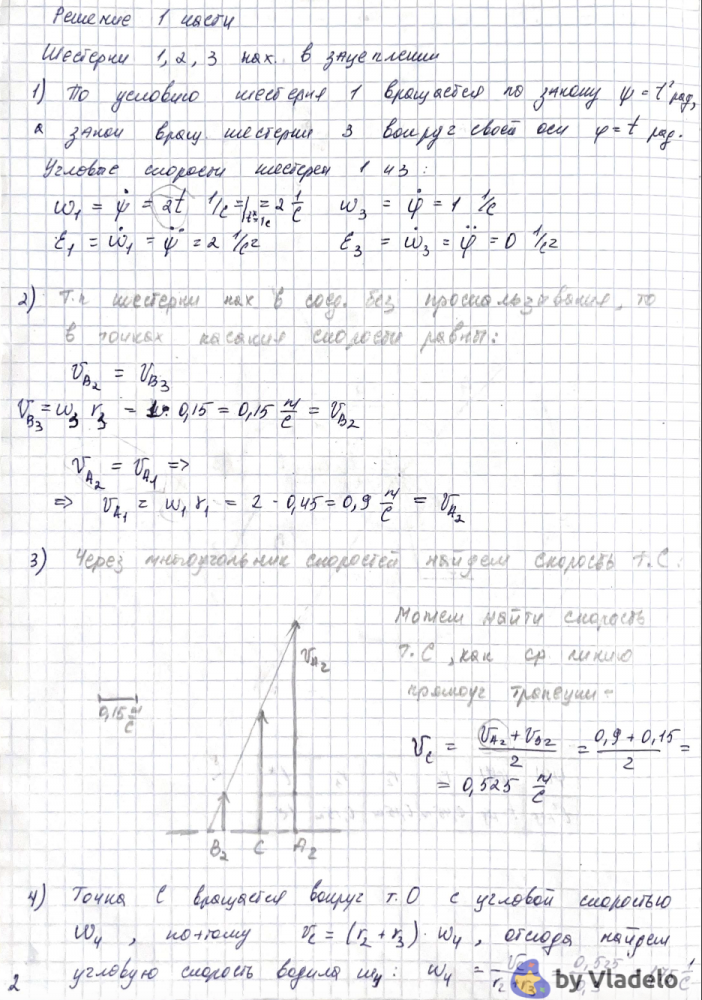 Решение 1 части
Шестерни 1, 2, 3 нах. в зацеплении
1) По условию шестерня 1 вращается по закону ψ = t² рад,
а закон вращ. шестерни 3 вокруг своей оси φ = t рад.
Угловые скорости шестерен 1 и 3:
ω₁ = ψ̇ = 2t 1/с = |t=1c = 2 1/с ω₃ = φ̇ = 1 1/с
ε₁ = ω̇₁ = ψ̈ = 2 1/с² ε₃ = ω̇₃ = φ̈ = 0 1/с²
2) Т.к шестерни нах в соед. без проскальзывания, то
в точках касания скорости равны:
V_B₂ = V_B₃
V_B₃ = ω₃ r₃ = 1 · 0,15 = 0,15 м/с = V_B₂
V_A₂ = V_A₁ =>
=> V_A₁ = ω₁ r₁ = 2 · 0,45 = 0,9 м/с = V_A₂
3) Через многоугольник скоростей найдем скорость т. С:
Можем найти скорость
т. С, как ср. линию
прямоуг трапеции:
V_A₂
0,15 м/с
V_C = (V_A₂ + V_B₂)/2 = (0,9 + 0,15)/2 =
= 0,525 м/с
B₂ C A₂
4) Точка С вращается вокруг т. О с угловой скоростью
ω₄, поэтому V_C = (r₂ + r₃) · ω₄, отсюда найдем
угловую скорость водила ω₄: ω₄ =
2
by Vladelo